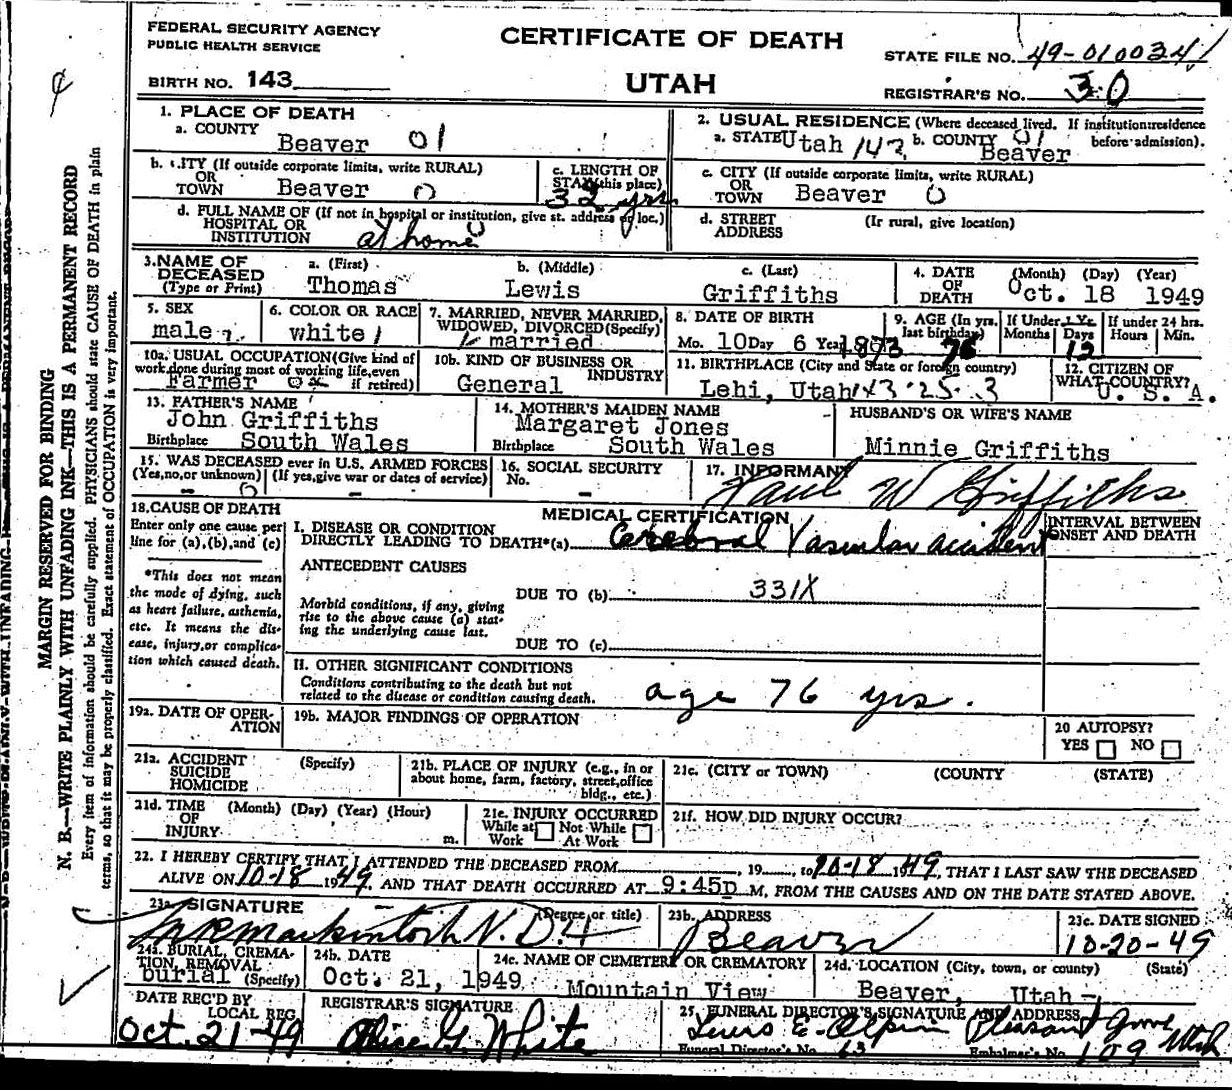 FEDERAL SECURITY AGENCY
PUBLIC HEALTH SERVICE
CERTIFICATE OF DEATH
STATE FILE NO. 49-010034
BIRTH NO. 143
UTAH
REGISTRAR'S NO. 30
MARGIN RESERVED FOR BINDING
N. B.—WRITE PLAINLY WITH UNFADING INK—THIS IS A PERMANENT RECORD
Every item of information should be carefully supplied. PHYSICIANS should state CAUSE OF DEATH in plain
terms, so that it may be properly classified. Exact statement of OCCUPATION is very important.
1. PLACE OF DEATH
a. COUNTY Beaver 01
2. USUAL RESIDENCE (Where deceased lived. If institution:residence before admission).
a. STATE Utah 143 b. COUNTY 01 Beaver
b. CITY (If outside corporate limits, write RURAL)
OR TOWN Beaver 0
c. LENGTH OF STAY (this place)
32 yrs
c. CITY (If outside corporate limits, write RURAL)
OR TOWN Beaver 0
d. FULL NAME OF (If not in hospital or institution, give st. address or loc.)
HOSPITAL OR INSTITUTION at home
d. STREET ADDRESS (Ir rural, give location)
3. NAME OF DECEASED (Type or Print)
a. (First) Thomas
b. (Middle) Lewis
c. (Last) Griffiths
4. DATE OF DEATH (Month) (Day) (Year)
Oct. 18 1949
5. SEX
male
6. COLOR OR RACE
white 1
7. MARRIED, NEVER MARRIED, WIDOWED, DIVORCED (Specify)
married
8. DATE OF BIRTH
Mo. 10 Day 6 Year 1873
9. AGE (In yrs. last birthday) 76
If Under 1 Yr. Months Days 12
If under 24 hrs. Hours Min.
10a. USUAL OCCUPATION (Give kind of work done during most of working life, even if retired)
Farmer
10b. KIND OF BUSINESS OR INDUSTRY
General
11. BIRTHPLACE (City and State or foreign country)
Lehi, Utah 143-25-3
12. CITIZEN OF WHAT COUNTRY?
U. S. A.
13. FATHER'S NAME
John Griffiths
Birthplace South Wales
14. MOTHER'S MAIDEN NAME
Margaret Jones
Birthplace South Wales
HUSBAND'S OR WIFE'S NAME
Minnie Griffiths
15. WAS DECEASED ever in U.S. ARMED FORCES
(Yes, no, or unknown) (If yes, give war or dates of service)
- 0 -
16. SOCIAL SECURITY No.
-
17. INFORMANT
Paul W Griffiths
18. CAUSE OF DEATH
Enter only one cause per line for (a), (b), and (c)
*This does not mean the mode of dying, such as heart failure, asthenia, etc. It means the disease, injury, or complication which caused death.
MEDICAL CERTIFICATION
INTERVAL BETWEEN ONSET AND DEATH
I. DISEASE OR CONDITION
DIRECTLY LEADING TO DEATH*(a) Cerebral Vascular accident
ANTECEDENT CAUSES
DUE TO (b) 331X
Morbid conditions, if any, giving rise to the above cause (a) stating the underlying cause last.
DUE TO (c)
II. OTHER SIGNIFICANT CONDITIONS
Conditions contributing to the death but not related to the disease or condition causing death.
age 76 yrs.
19a. DATE OF OPERATION
19b. MAJOR FINDINGS OF OPERATION
20 AUTOPSY?
YES NO
21a. ACCIDENT SUICIDE HOMICIDE (Specify)
21b. PLACE OF INJURY (e.g., in or about home, farm, factory, street, office bldg., etc.)
21c. (CITY or TOWN) (COUNTY) (STATE)
21d. TIME OF INJURY (Month) (Day) (Year) (Hour) m.
21e. INJURY OCCURRED
While at Work Not While At Work
21f. HOW DID INJURY OCCUR?
22. I HEREBY CERTIFY THAT I ATTENDED THE DECEASED FROM , 19 , to 10-18 1949, THAT I LAST SAW THE DECEASED
ALIVE ON 10-18 1949, AND THAT DEATH OCCURRED AT 9:45p M, FROM THE CAUSES AND ON THE DATE STATED ABOVE.
23a. SIGNATURE (Degree or title)
Mackintosh
23b. ADDRESS
Beaver
23c. DATE SIGNED
10-20-49
24a. BURIAL, CREMATION, REMOVAL (Specify)
burial
24b. DATE
Oct. 21, 1949
24c. NAME OF CEMETERY OR CREMATORY
Mountain View
24d. LOCATION (City, town, or county) (State)
Beaver, Utah
DATE REC'D BY LOCAL REG.
Oct. 21-49
REGISTRAR'S SIGNATURE
Alice G. White
25. FUNERAL DIRECTOR'S SIGNATURE AND ADDRESS
Lewis E. Olpin Pleasant Grove Utah
Funeral Director's No. 63 Embalmer's No. 109